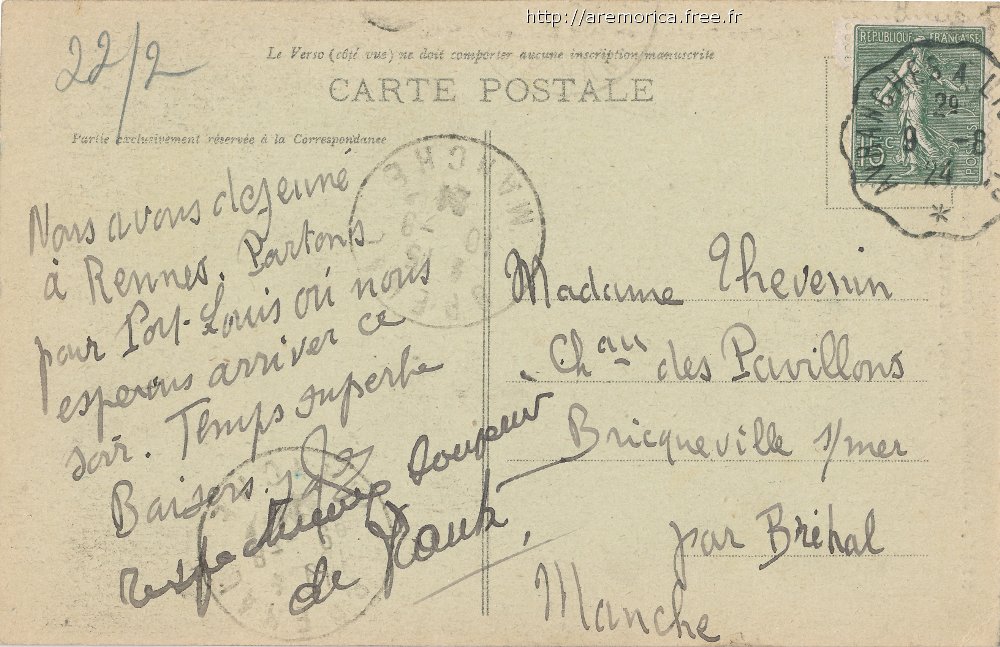 http://aremorica.free.fr
22/2
Le Verso (côté vue) ne doit comporter aucune inscription manuscrite
CARTE POSTALE
Partie exclusivement réservée à la Correspondance
RÉPUBLIQUE FRANÇAISE
15c POSTES
AVRANCHES A
29
9 -8
24
*
MANCHE
Nous avons déjeuné
à Rennes. Partons
pour Port-Louis où nous
esperons arriver ce
soir. Temps superbe
Baisers.
respectueux souvenir
de
Madame Thevenin
Chau des Pavillons
Bricqueville s/mer
par Bréhal
Manche